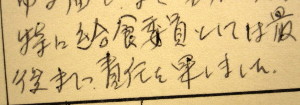 特に給食委員としては最
後まで責任を果しました。